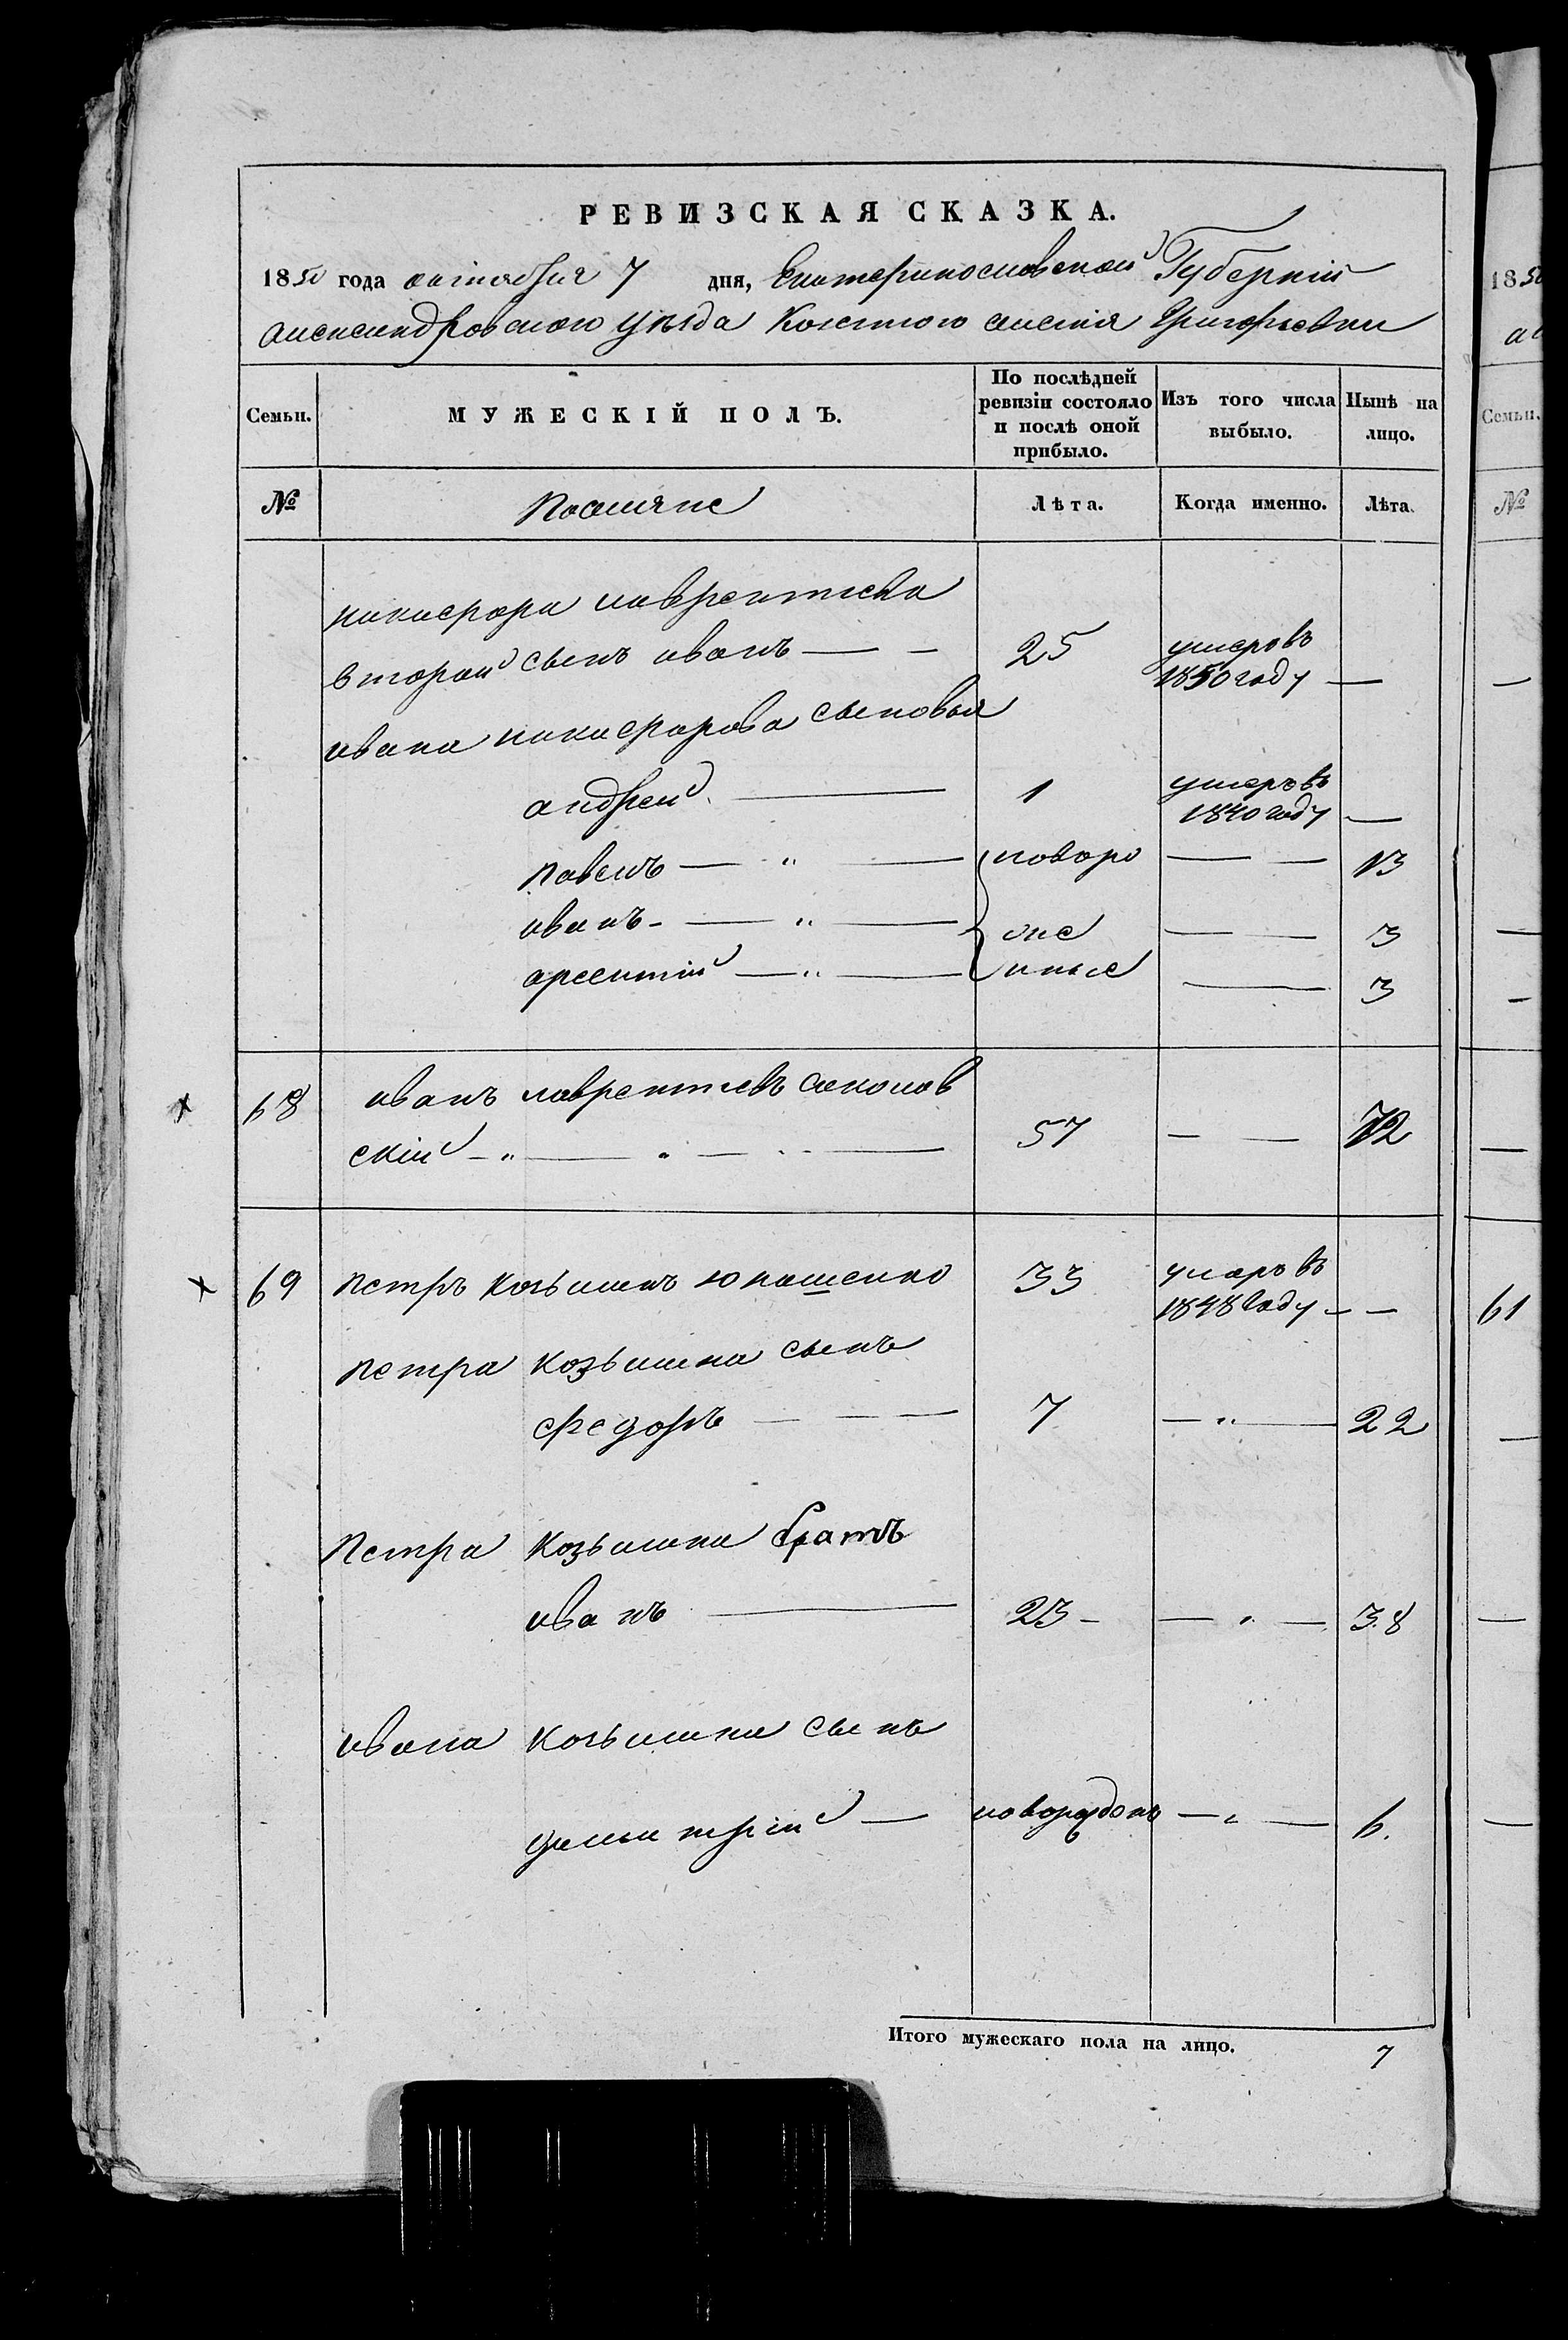 РЕВИЗСКАЯ СКАЗКА.
1850 года октября 7 дня, Екатеринославской Губерніи
александровского уѣзда Козенного селенія Григорьевки
Семьи. МУЖЕСКІЙ ПОЛЪ. По послѣдней ревизіи состояло и послѣ оной прибыло. Изъ того числа выбыло. Нынѣ на лицо.
№ Поселяне Лѣта. Когда именно. Лѣта.
никифора лаврентиева
второй сынъ иванъ — — 25 умеръ въ 1850 году —
ивана никифорова сыновья
андрей — 1 умеръ въ 1840 году —
павелъ — „ — новоро — — 13
иванъ — „ — жде — — 3
арсентий — „ — нные — 3
68 иванъ лаврентиевъ соколов
скій — „ — 57 — — 72
69 петръ козьминъ юнашенко 33 умеръ въ 1848 году — —
петра козьмина сынъ
федоръ — — — 7 — „ — 22
Петра козьмина братъ
иванъ — 23 — — „ — 38
ивана козьмина сынъ
димитрій — новорожденъ — „ — 6.
Итого мужескаго пола на лицо. 7
1850
Семьи.
№
61